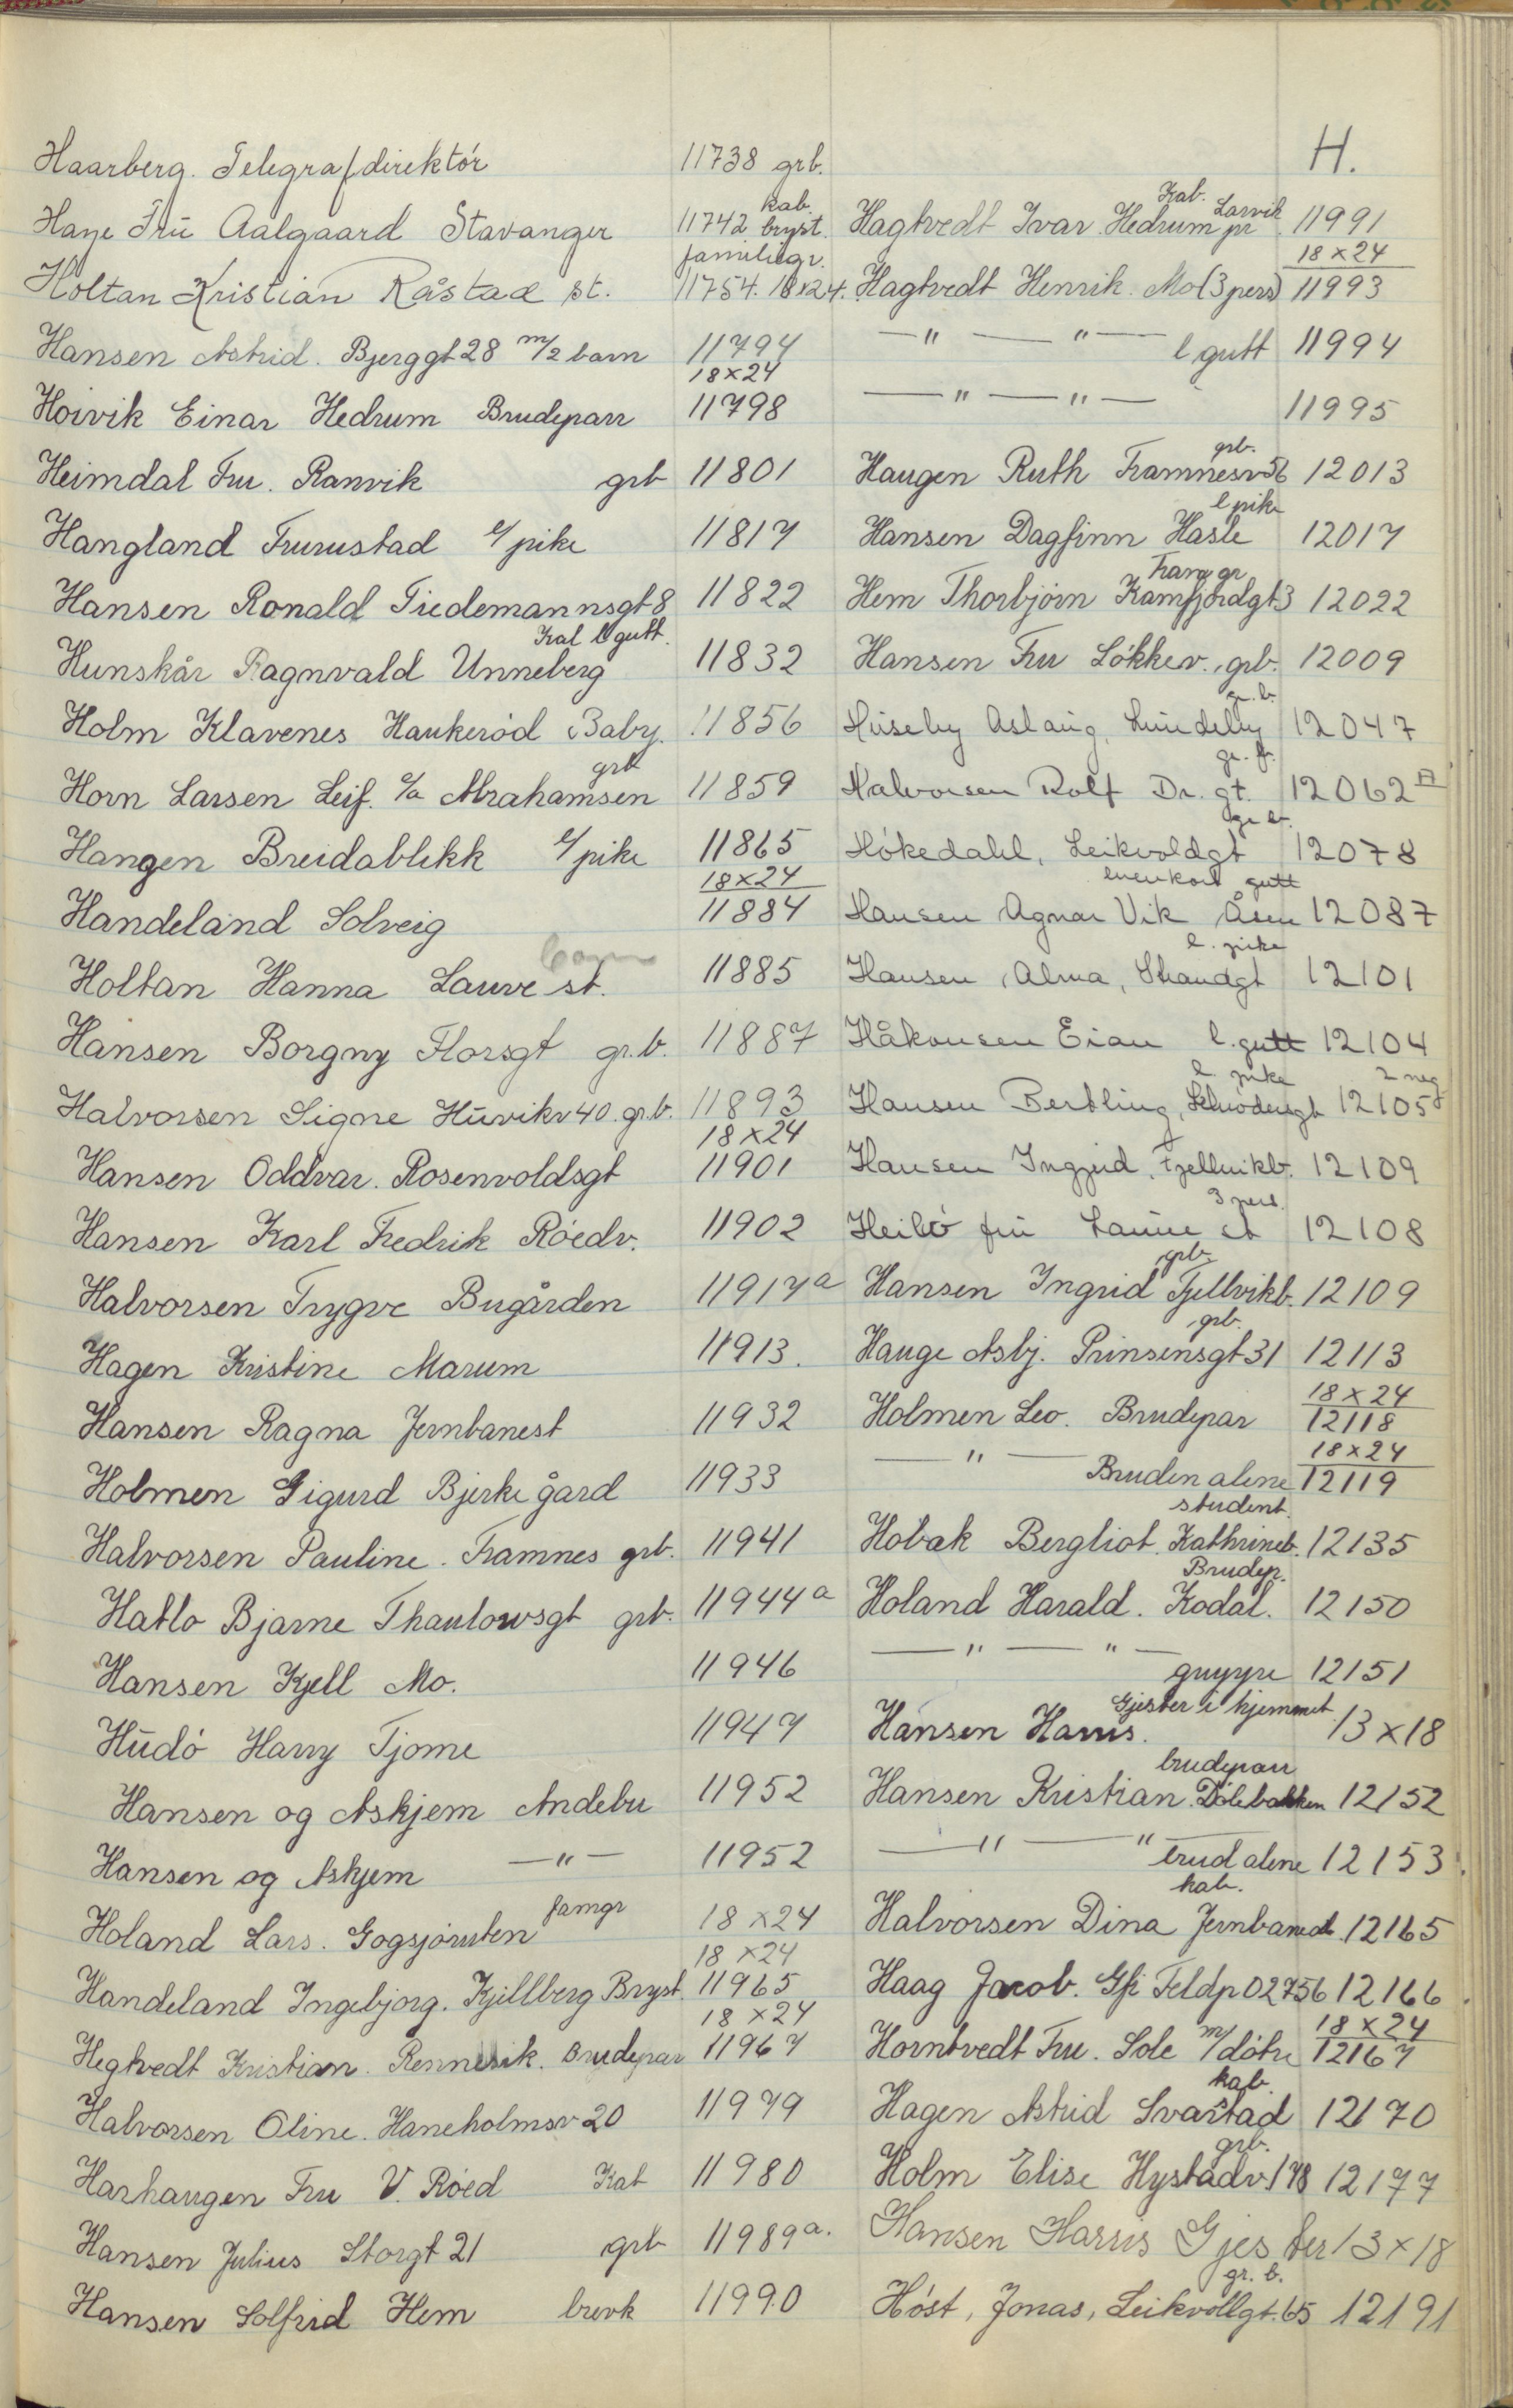 H.
Haarberg. Telegrafdirektór 11738 grb.
Haye Frū Aalgaard Stavanger 11742 kab. bryst.
Holtan Kristian Råstad st. familiegr. 11754. 18x24.
Hansen Astrid. Bjerggt 28 m/2 barn 11794
Hoivik Einar Hedrum Brudeparr 18x24 11798
Heimdal Fru. Ranvik grb 11801
Hangland Fururustad l/pike 11817
Hansen Ronald Tiedemannsgt 8 11822
Hunskår Ragnvald Unneberg Kal l gutt. 11832
Holm Klavenes Haukeród Baby. 11856
Horn Larsen Leif. c/a Abrahamsen grb 11859
Hangen Breidablikk l/pike 11865
Handeland Solveig 18x24 11884
Holtan Hanna Lauve st. 11885
Hansen Borgny Florsgt gr.b. 11887
Halvorsen Signe Hūvikv 40. gr.b. 11893
Hansen Oddvar. Rosenvoldsgt 18x24 11901
Hansen Karl Fredrik Róedv. 11902
Halvorsen Trygve Bugården 11917a
Hagen Kristine Marum 11913.
Hansen Ragna Jernbanest 11932
Holmen Sigurd Bjerke gård 11933
Halvorsen Pauline. Framnes grb. 11941
Hatlo Bjarne Thaulowsgt grb. 11944a
Hansen Kjell Mo. 11946
Hūdó Harry Tjome 11947
Hansen og Askjem Andebu 11952
Hansen og Askjem —"— 11952
Holand Lars. Gogsjóruten famgr 18x24
Handeland Ingebjorg. Kjellberg Bryst. 18x24 11965
Hegtvedt Kristian. Rennesik. Brudepar 18x24 11967
Halvorsen Oline. Haneholmsv 20 11979
Harhaugen Fru V. Róed Kab 11980
Hansen Julius Storgt 21 grb 11989a.
Hansen Solfrid Hem brevk 11990
Hagtvedt Ivar Hedrum pr Larvik Kab. 11991
Hagtvedt Henrik. Mo (3 pers) 18x24 11993
—"— —"— l gutt 11994
—"— —"— 11995
Haugen Ruth Framnesv 56 grb. 12013
Hansen Dagfinn Hasle l pike 12017
Hem Thorbjórn Kamfjordgt 3 12022
Hansen Fru Lókkev. grb. 12009
Hūseby Aslaūg, Lūndeby gr.b. 12047
Halvorsen Rolf Dr. gt. gr. b. 12062
Hókedahl, Leikvoldgt gr b. 12078
Hansen Agnar Vik Åsen gutt 12087
Hansen, Alma, Strandgt l. pike 12101
Håkonsen Eian l. gutt 12104
Hansen Bertling, Schrodersgt l pike 2 neg 12105
Hansen Ingrid. Fjellvikb. 12109
Heibó frū Lauve st 3 pers. 12108
Hansen Ingrid Fjellvikb. grb. 12109
Hauge Asbj. Prinsensgt 31 grb. 12113
Holmen Leo. Brudepar 18x24 12118
—"— Bruden alene 18x24 12119
Hobak Bergliot. Kathrineb. student. 12135
Holand Harald. Kodal. Brudep. 12150
—"— —"— 12151
Hansen Harris. Gjester i hjemmet 13x18
Hansen Kristian. Dólebakken brudeparr 12152
—"— —"— brud alene 12153.
Halvorsen Dina Jernbaned. kab. 12165
Haag Jacob. Gfr Feldp 02756 12166
Horntvedt Fru. Sole m/dótre 18x24 12167
Hagen Astrid Svarstad kab. 12170
Holm Elise Hystadv 178 grb. 12177
Hansen Harris Gjester 13x18
Hóst, Jonas, Leikvollgt. 65 gr. b. 12191